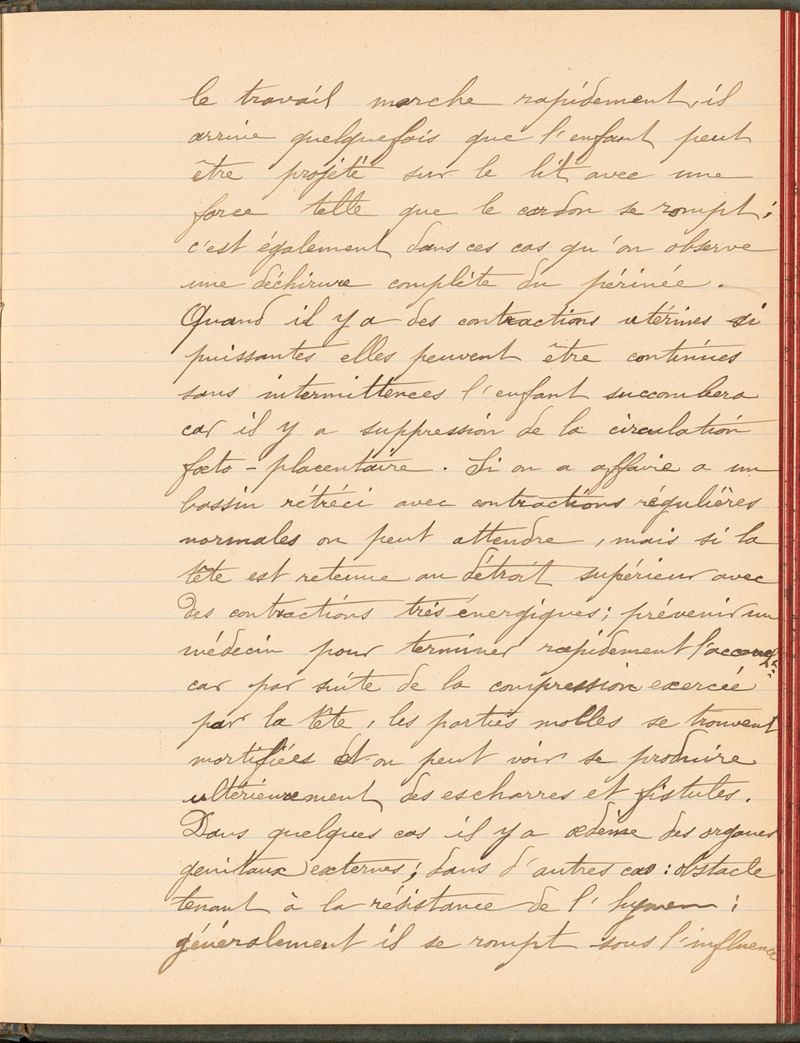 le travail marche rapidement, il
arrive quelquefois que l'enfant peut
être projeté sur le lit avec une
force telle que le cordon se rompt ;
c'est également dans ces cas qu'on observe
une déchirure complète du périnée.
Quand il y a des contractions utérines si
puissantes elles peuvent être continues
sans intermittences l'enfant succombera
car il y a suppression de la circulation
fœto-placentaire. Si on a affaire a un
bassin rétréci avec contractions régulières
normales on peut attendre, mais si la
tête est retenue au détroit supérieur avec
des contractions très énergiques ; prévenir un
médecin pour terminer rapidement l'accouc
car par suite de la compression exercée
par la tête, les parties molles se trouvent
mortifiées et on peut voir se produire
ultérieurement des escharres et fistules.
Dans quelques cas il y a œdème des organes
genitaux externes ; dans d'autres cas : obstacle
tenant à la résistance de l'hymen ;
généralement il se rompt sous l'influence